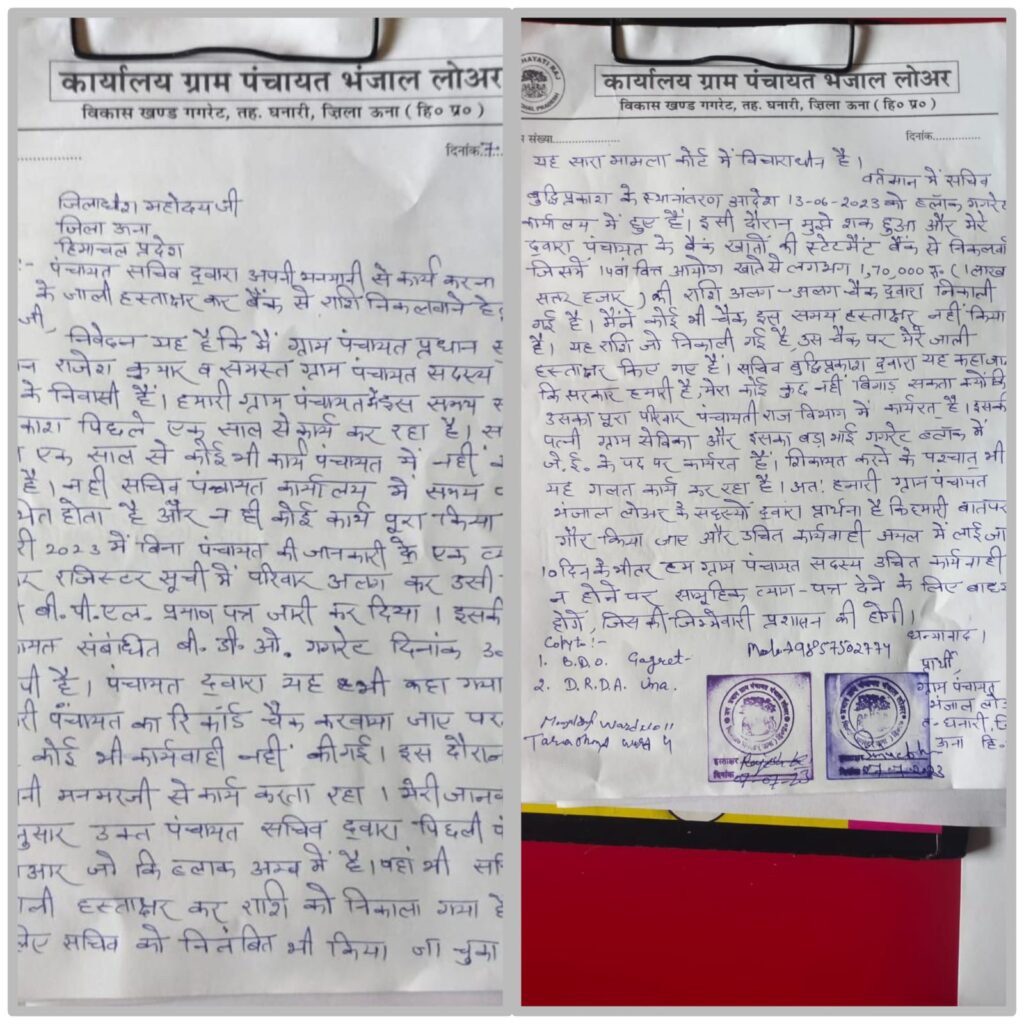 कार्यालय ग्राम पंचायत भंजाल लोअर
विकास खण्ड गगरेट, तह. घनारी, ज़िला ऊना ( हि० प्र० )
दिनांक.7.
जिलाधीश महोदय जी
जिला ऊना
हिमाचल प्रदेश
पंचायत सचिव द्वारा अपनी मनमानी से कार्य करना
के जाली हस्ताक्षर कर बैंक से राशि निकलवाने हेतु
जी,
निवेदन यह है कि मैं ग्राम पंचायत प्रधान
राजेश कुमार व समस्त ग्राम पंचायत सदस्य
के निवासी हैं। हमारी ग्राम पंचायत में इस समय
काश पिछले एक साल से कार्य कर रहा है।
एक साल से कोई भी कार्य पंचायत में नहीं
है। नही सचिव पंचायत कार्यालय में समय
होता है और न ही कोई कार्य पूरा किया
री 2023 में बिना पंचायत की जानकारी के एक
र राजिस्टर सूची में परिवार अलग कर उसी
बी.पी.एल. प्रमाण पत्र जारी कर दिया। इसकी
संबंधित बी.डी.ओ. गगरेट दिनांक
है। पंचायत द्वारा यह भी कहा गया
री पंचायत का रिकॉर्ड चैक करवाया जाए पर
कोई भी कार्यवाही नहीं की गई। इस दौरान
नी मनमरजी से कार्य करता रहा। मेरी जान
नुसार उक्त पंचायत सचिव द्वारा पिछली
आर जो कि ब्लाक अम्ब में है। वहां भी
हस्ताक्षर कर राशि को निकाला गया है
लिए सचिव को निलंबित भी किया जा चुका
HAYATI RAJ
PRADESH
कार्यालय ग्राम पंचायत भंजाल लोअर
विकास खण्ड गगरेट, तह. घनारी, ज़िला ऊना ( हि० प्र० )
संख्या
दिनांक
यह सारा मामला कोर्ट में विचाराधीन है।
वर्तमान में सचिव
बुद्धिप्रकाश के स्थानांतरण आदेश 13-06-2023 को ब्लाक गगरेट
कार्यालय में हुए हैं। इसी दौरान मुझे शक हुआ और मेरे
द्वारा पंचायत के बैंक खातों की स्टेटमैंट बैंक से निकलवा
जिसमें 14वां वित्त आयोग खाते से लगभग 1,70,000 रु. (1लाख
सत्तर हजार) की राशि अलग-अलग चैक द्वारा निकाली
गई है। मैंने कोई भी चैक इस समय हस्ताक्षर नहीं किया
है। यह राशि जो निकाली गई है, उस चैक पर मेरे जाली
हस्ताक्षर किए गए हैं। सचिव बुद्धिप्रकाश द्वारा यह कहा जा
कि सरकार हमारी है, मेरा कोई कुछ नहीं बिगाड़ सकता क्योंकि
उसका पूरा परिवार पंचायती राज विभाग में कार्यरत है। इसकी
पत्नी ग्राम सेविका और इसका बडा भाई गगरेट ब्लॉक में
जे.ई. के पद पर कार्यरत हैं। शिकायत करने के पश्चात् भी
यह गलत कार्य कर रहा है। अतः हमारी ग्राम पंचायत
भंजाल लोअर के सदस्यों द्वारा प्रार्थना है कि हमारी बात पर
गौर किया जाए और उचित कार्यवाही अमल में लाई जा
10 दिन के भीतर हम ग्राम पंचायत सदस्य उचित कार्यवाही
न होने पर सामूहिक त्याग-पत्र देने के लिए बाध्य
होगें, जिस की जिम्मेवारी प्रशासन की होगी।
धन्यावाद।
Copy to:-
1. B.D.O. Gagret-
2. D.R.D.A. Una.
9857502774
प्रार्थी
ग्राम पंचायत
भंजाल लो
घनारी, जि
ऊना हि.
हस्ताक्षर
दिनांक
हस्ताक्षर
दिनांक